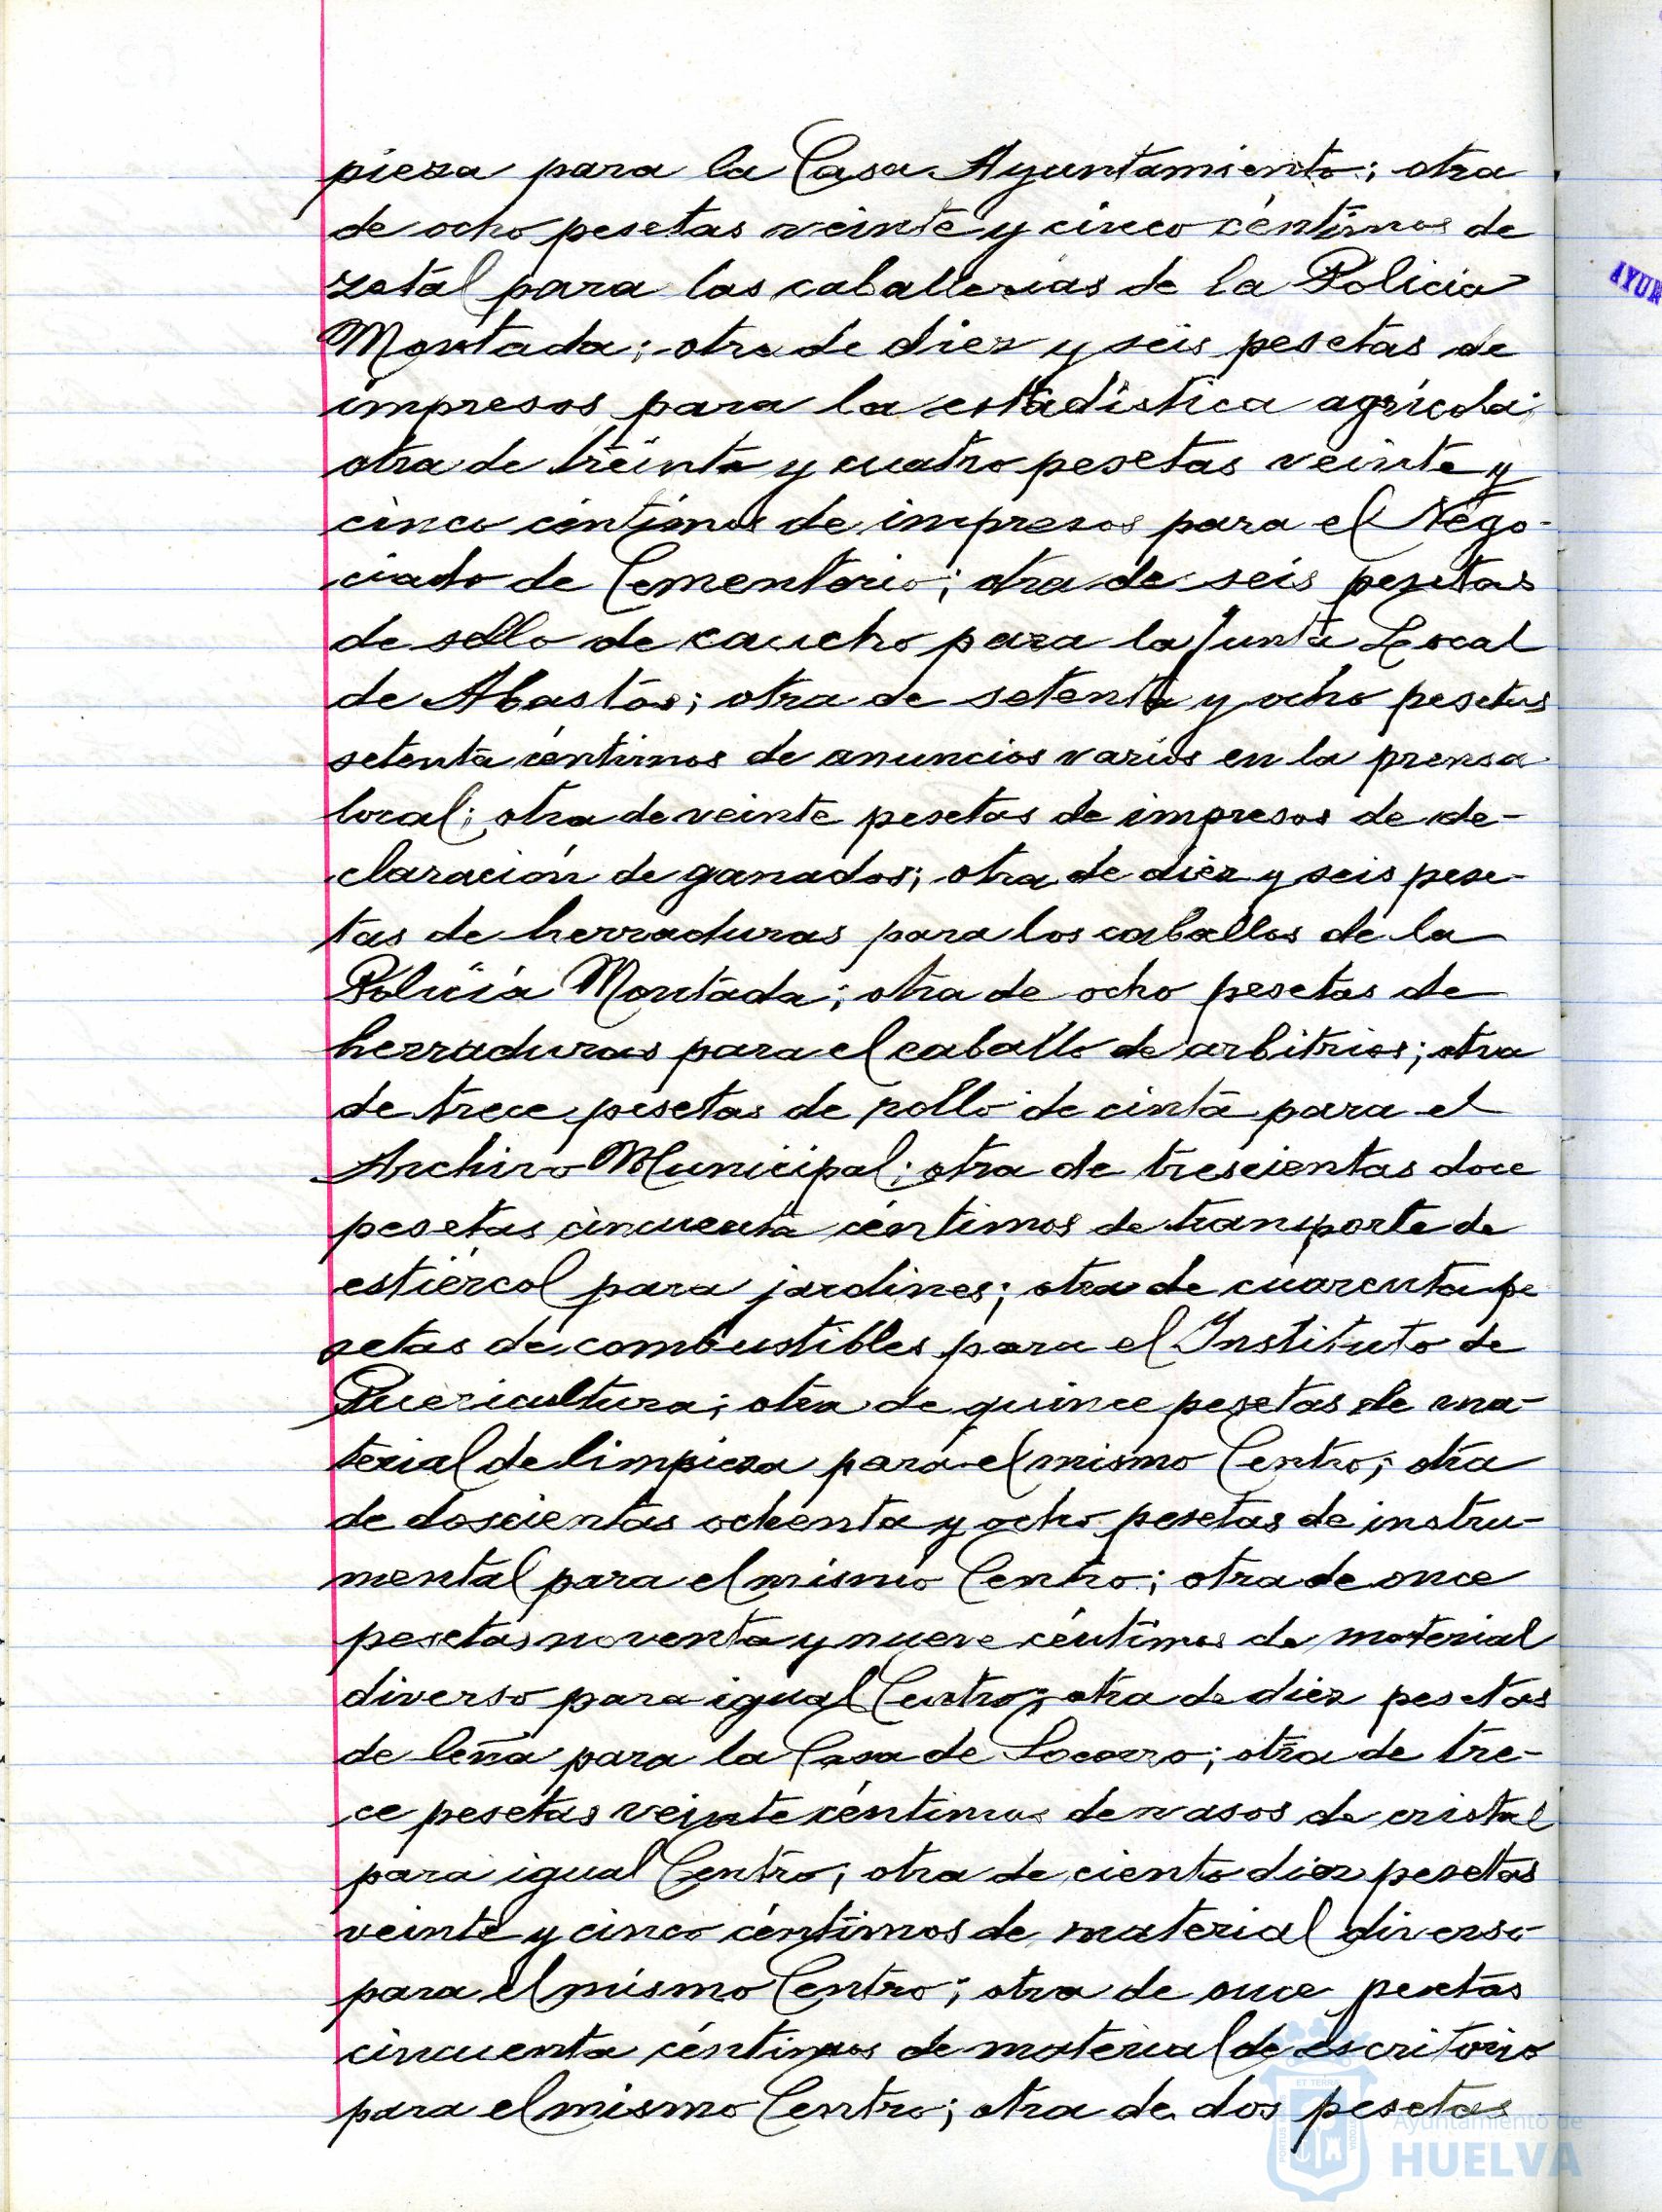 pieza para la Casa Ayuntamiento; otra
de ocho pesetas veinte y cinco céntimos de
zotal para las caballerias de la Policia
Montada; otra de diez y seis pesetas de
impresos para la estadística agrícola;
otra de treinta y cuatro pesetas veinte y
cinco céntimos de impresos para el Nego-
ciado de Cementerio; otra de seis pesetas
de sello de caucho para la Junta Local
de Abastos; otra de setenta y ocho pesetas
setenta céntimos de anuncios varios en la prensa
local; otra de veinte pesetas de impresos de de-
claración de ganados; otra de diez y seis pese-
tas de herraduras para los caballos de la
Policía Montada; otra de ocho pesetas de
herraduras para el caballo de arbitrios; otra
de trece pesetas de rollo de cinta para el
Archivo Municipal; otra de trescientas doce
pesetas cincuenta céntimos de transporte de
estiércol para jardines; otra de cuarenta pe
setas de combustibles para el Instituto de
Puericultura; otra de quince pesetas de ma-
terial de limpieza para el mismo Centro; otra
de doscientas ochenta y ocho pesetas de instru-
mental para el mismo Centro; otra de once
pesetas noventa y nueve céntimos de material
diverso para igual Centro; otra de diez pesetas
de leña para la Casa de Socorro; otra de tre-
ce pesetas veinte céntimos de vasos de cristal
para igual Centro; otra de ciento diez pesetas
veinte y cinco céntimos de material diverso
para el mismo Centro; otra de once pesetas
cincuenta céntimos de material de escritorio
para el mismo Centro; otra de dos pesetas
AYUN
Ayuntamiento de
HUELVA